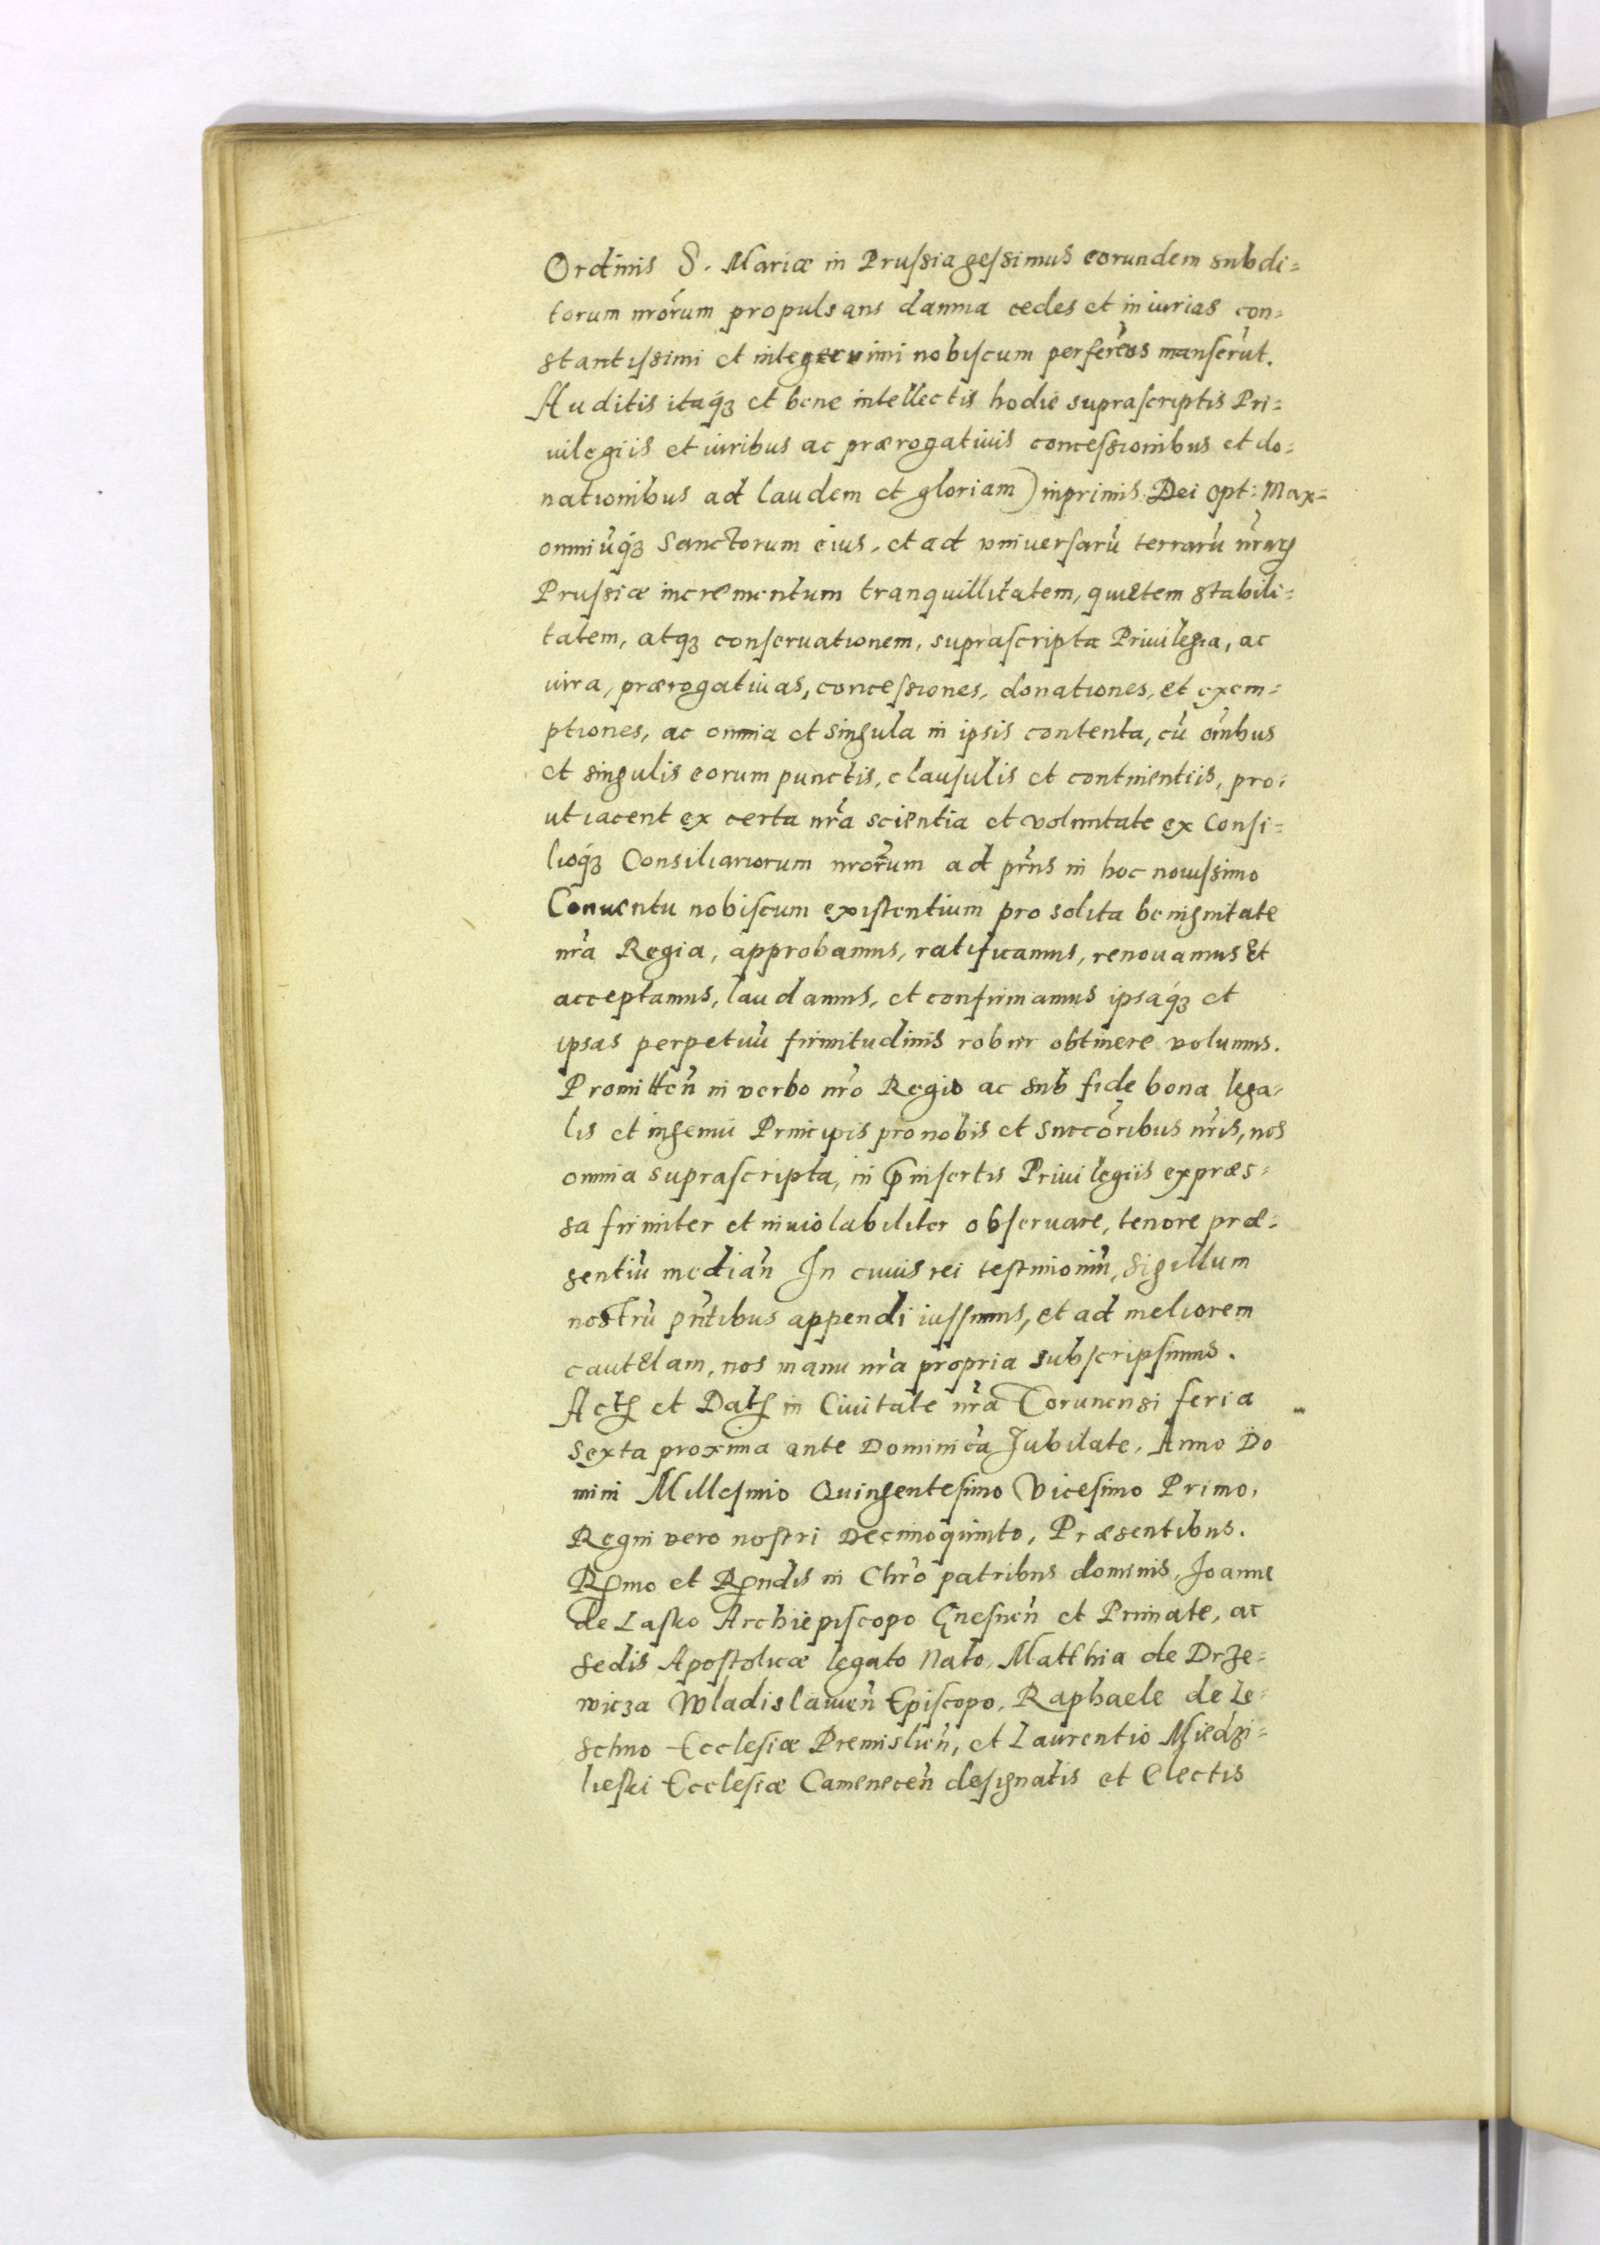 Ordinis S. Mariæ in Prussia gessimus eorundem subdi=
torum nrõrum propulsans damna cedes et iniurias con=
stantissimi et integerrimi nobiscum manserũt.
Auditis itaq́ꝫ et bene intellectis hodie suprascriptis Pri=
uilegiis et iuribus ac prærogatiuis concessionibus et do=
nationibus ad laudem et gloriam) inprimis Dei Opt: Max=
omniũq́ꝫ Sanctorum eius, et ad vniuersarũ terrarũ
Prussiæ incrementum tranquillitatem, quietem stabili=
tatem, atqꝫ conseruationem, suprascripta Priuilegia, ac
iura, prærogatiuas, concessiones, donationes, et exem=
ptiones, ac omnia et singula in ipsis contenta, cũ om̃ibus
et singulis eorum punctis, clausulis et continentiis, pro=
ut iacent ex certa nr̃a scientia et voluntate ex Consi=
lioq́ꝫ Consiliariorum nrõrum ad pr̃ns in hoc nouissimo
Conuentu nobiscum existentium pro solita benignitate
nr̃a Regia, approbamus, ratificamus, renouamus et
acceptamus, laudamus, et confirmamus ipsaq́ꝫ et
ipsas perpetuũ firmitudinis robur obtinere volumus.
Promitteñ in verbo nr̃o Regio ac sub fide bona lega=
lis et ingenui Principis pro nobis et succõribus nr̃is, nos
omnia suprascripta, in p̃insertis Priuilegiis expræs=
sa firmiter et inuiolabiliter obseruare, tenore præ=
sentiũ mediañ In cuius rei testimoniũ, Sigillum
nostrũ pñtibus appendi iussimus, et ad meliorem
cautelam, nos manu nr̃a propria subscripsimus.
Actꝭ et Datꝭ in Ciuitate nr̃a Torunensi feria
sexta proxima ante Dominicã Jubilate, Anno Do
mini Millesimo Quingentesimo Vicesimo Primo,
Regni vero nostri Decimoquinto, Præsentibus.
Rp̃mo et Rp̃ndis in Chr̃o patribus dominis, Joanne
de Lasko Archiepiscopo Gnesneñ et Primate, ac
sedis Apostolicæ legato Nato, Matthia de Drze=
wicza Wladislauieñ Episcopo, Raphaele de Le=
schno Ecclesiæ Premislieñ, et Laurentio Miedzi=
lieski Ecclesiæ Cameneceñ designatis et Electis